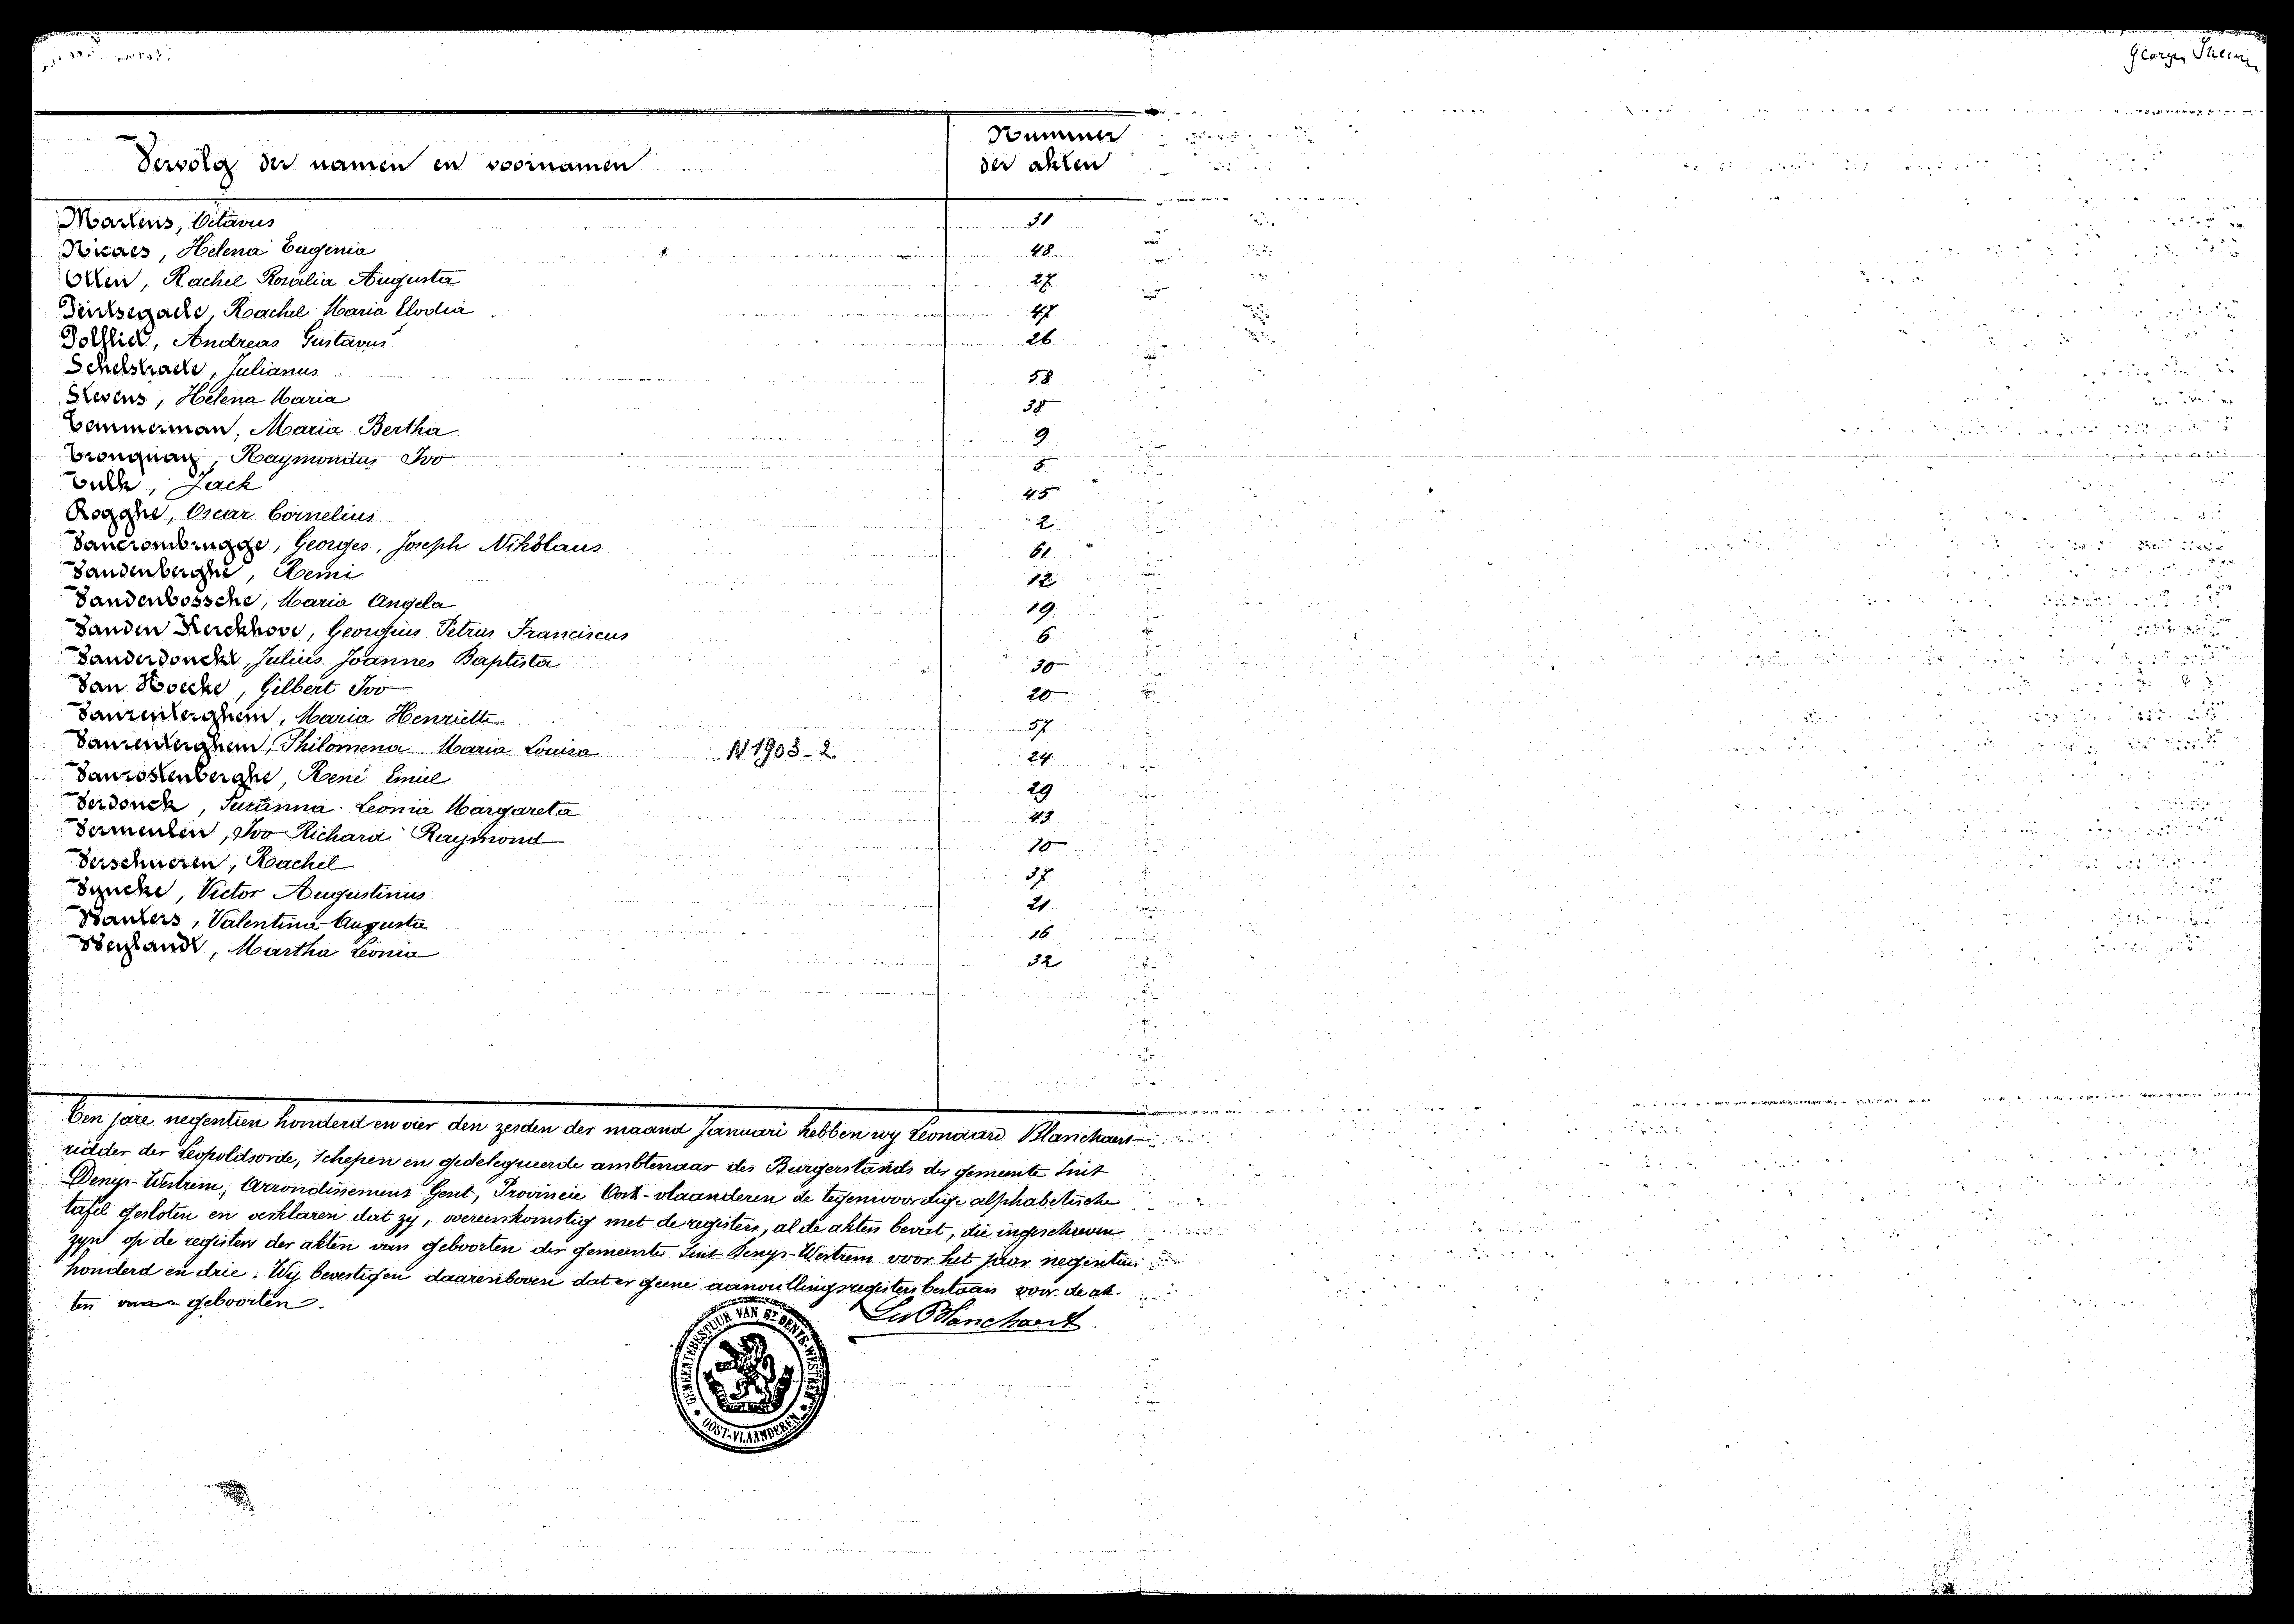 Georges
Vervolg der namen en voornamen
Nummer
der akten
Martens, Octavus 31
Nicaes, Helena Eugenia 48
Otten, Rachel Rosalia Augusta 27
Peirtsegaele, Rachel Maria Elodia 47
Polfliet, Andreas Gustavus 26
Schelstraete, Julianus 58
Stevens, Helena Maria 38
Temmerman, Maria Bertha 9
Tronquay, Raymondus Ivo 5
Jack 45
Rogghe, Oscar Cornelius 2
Vancrombrugge, Georges, Joseph Nikolaus 61
Vandenberghe, Remi 12
Vandenbossche, Maria Angela 19
Vanden Kerckhove, Georgius Petrus Franciscus 6
Vanderdonckt, Julius Joannes Baptista 30
Van Hoecke, Gilbert Ivo 20
Vanrenterghem, Maria Henriette 57
Vanrenterghem, Philomena Maria Louisa N 1903-2 24
Vanrostenberghe, René Emiel 29
Verdonck, Suzanna Leonia Margareta 43
Vermeulen, Ivo Richard Raymond 10
Verschueren, Rachel 37
Vyncke, Victor Augustinus 21
Wauters, Valentina Augusta 16
Weylandt, Martha Leonia 32
Ten jare negentien honderd en vier den zesden der maand Januari hebben wy Leonaard Blanchaert
ridder der Leopoldsorde, Schepen en gedelegueerde ambtenaar des Burgerstands der gemeente Sint
Denys-Westrem, Arrondissement Gent, Provincie Oost-vlaanderen de tegenwoordige alphabetische
tafel gesloten en verklaren dat zy, overeenkomstig met de registers, al de akten bevat, die ingeschreven
zyn op de registers der akten van geboorten der gemeente Sint Denys-Westrem voor het jaar negentien
honderd en drie. Wy bevestigen daarenboven dat er geene aanvullingsregisters bestaan voor de ak-
ten van geboorten.
Blanchaert
GEMEENTEBESTUUR VAN ST DENIS-WESTREM
OOST-VLAANDEREN